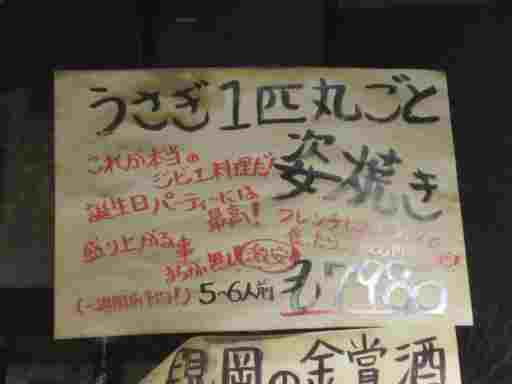 うさぎ1匹丸ごと
姿焼き
これが本当の
ジビエ料理だ!
誕生日パーティーには
最高!
盛り上がる事
激安
(一週間前予約!)
5~6人前
7,980
福岡の金賞酒